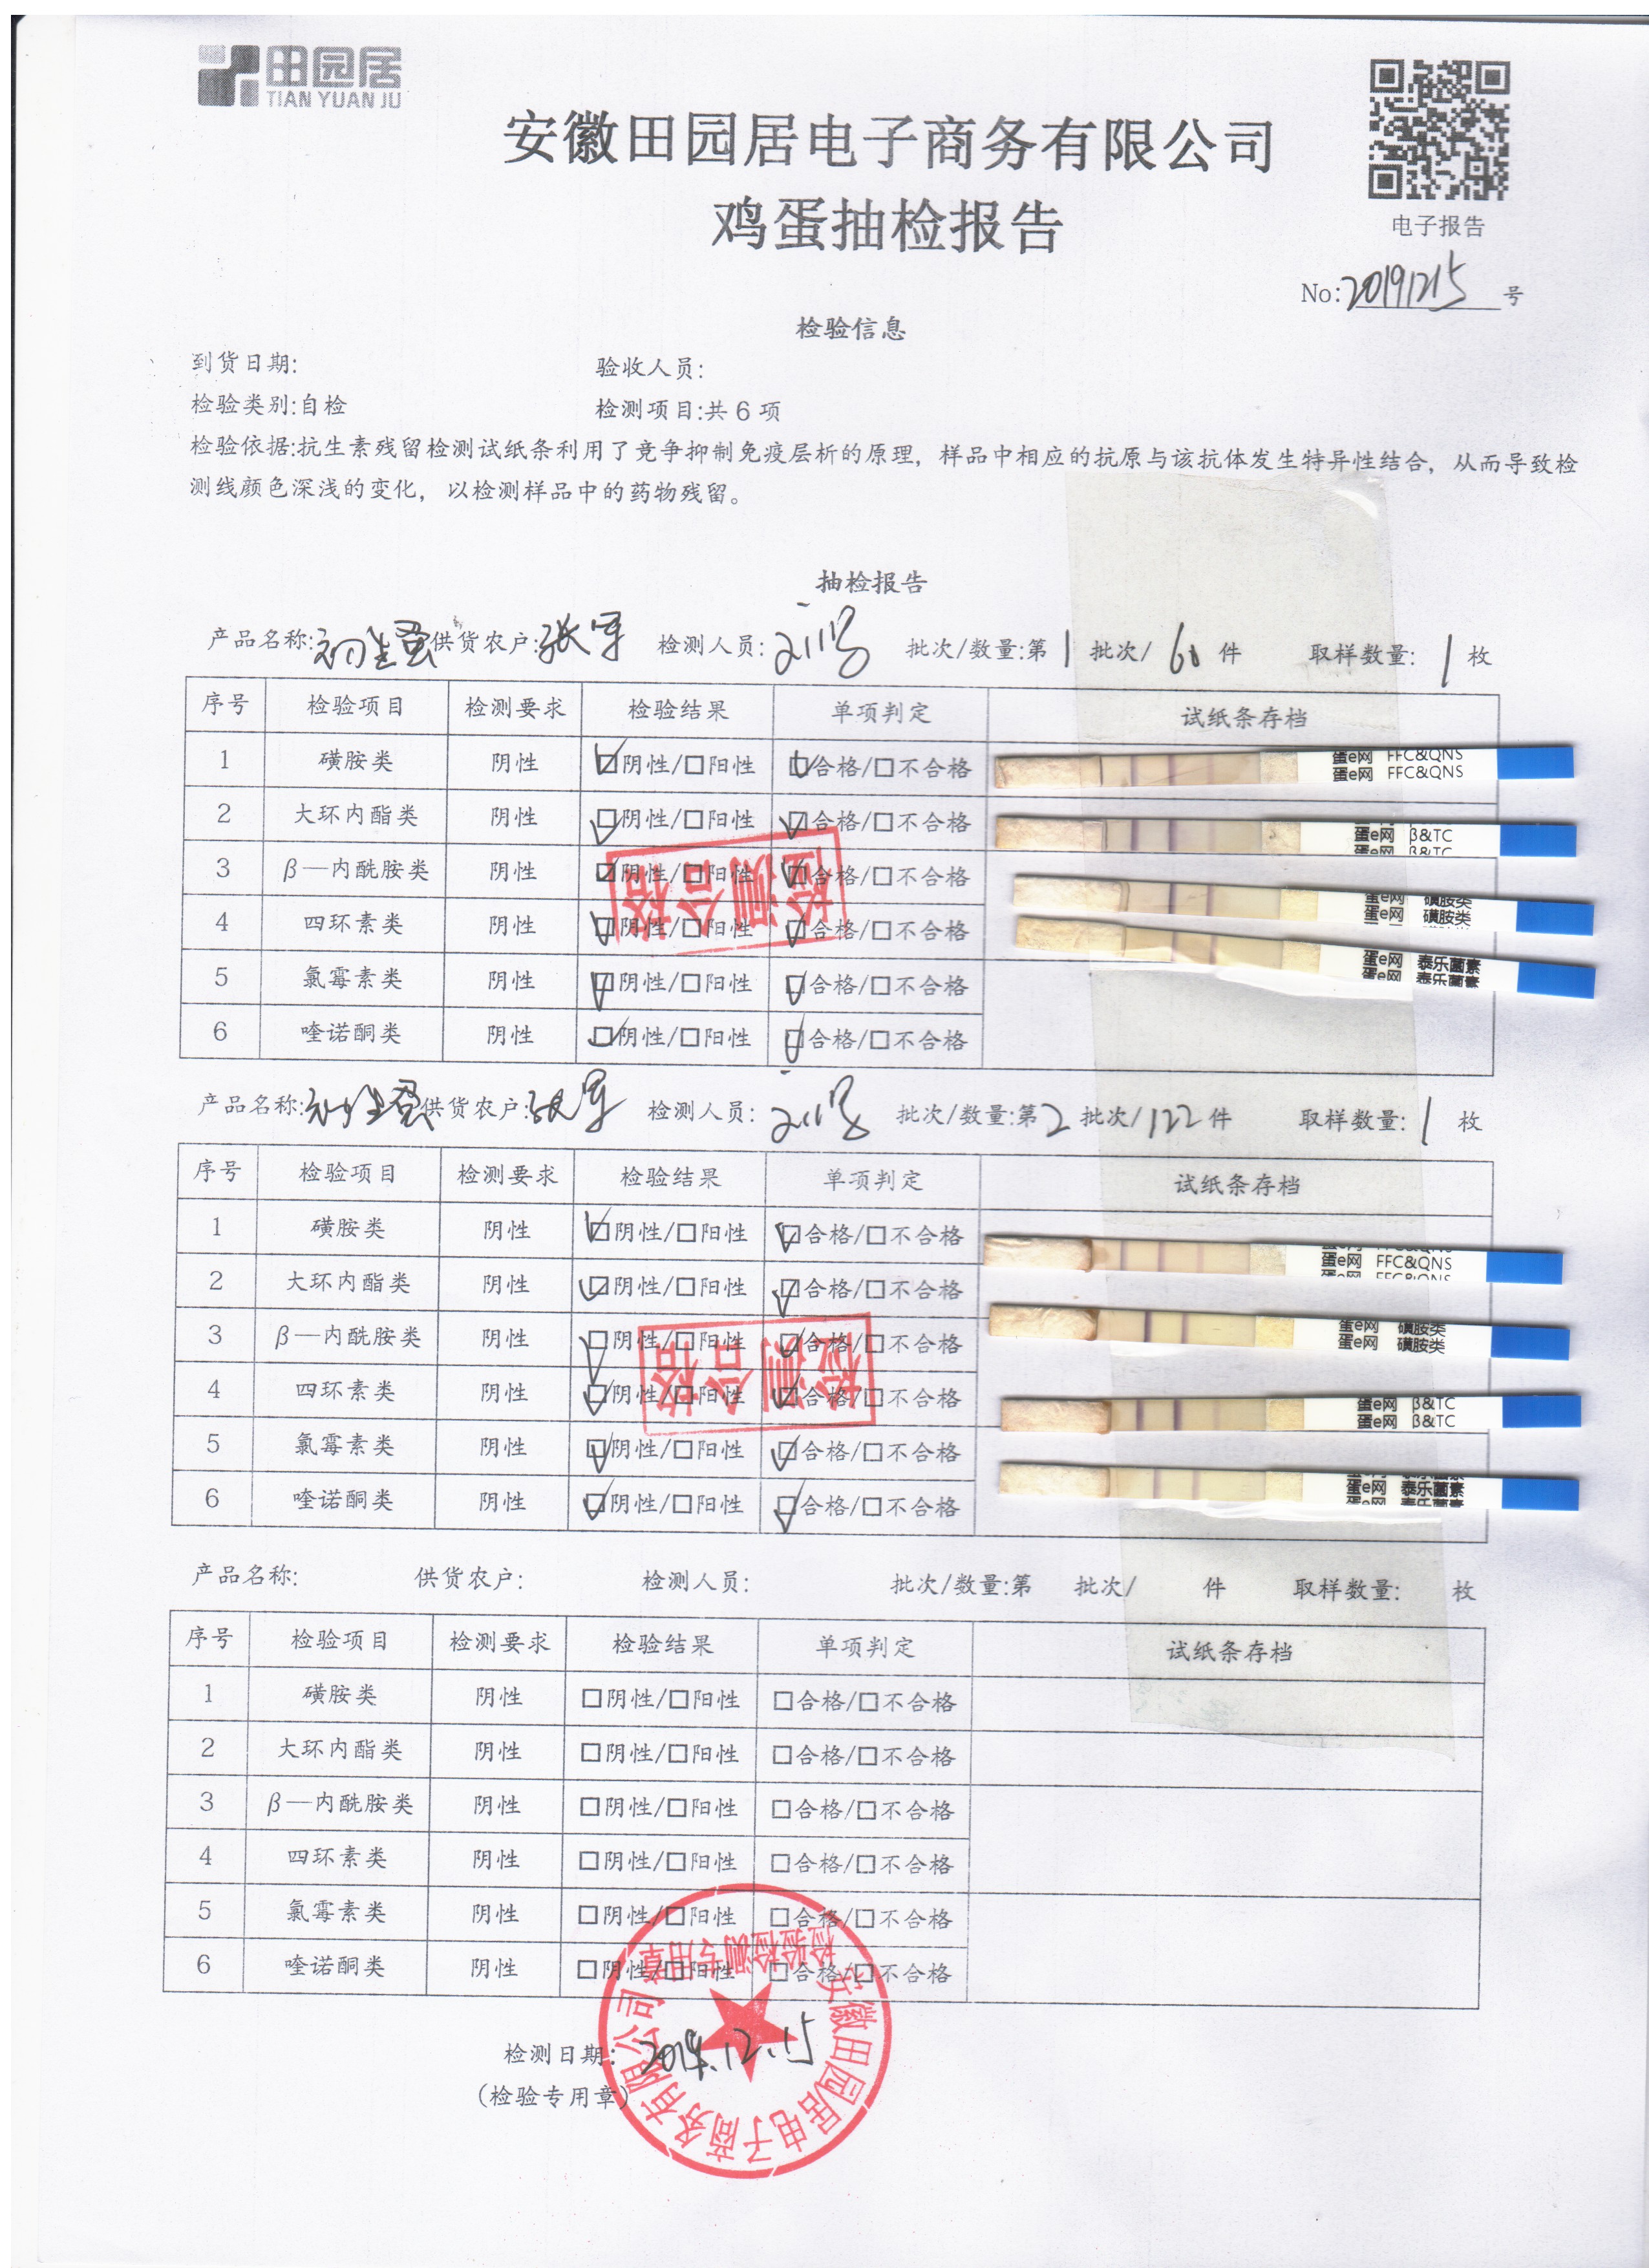 田园居
TIAN YUAN JU
安徽田园居电子商务有限公司
鸡蛋抽检报告
电子报告
No:20191215号
检验信息
到货日期: 验收人员:
检验类别:自检 检测项目:共6项
检验依据:抗生素残留检测试纸条利用了竞争抑制免疫层析的原理，样品中相应的抗原与该抗体发生特异性结合，从而导致检
测线颜色深浅的变化，以检测样品中的药物残留。
抽检报告
产品名称:初生蛋 供货农户:张军 检测人员: 批次/数量:第1批次/60件 取样数量:1枚
序号 检验项目 检测要求 检验结果 单项判定 试纸条存档
1 磺胺类 阴性 ☑阴性/□阳性 ☑合格/□不合格 蛋e网 FFC&QNS
蛋e网 FFC&QNS
2 大环内酯类 阴性 ☑阴性/□阳性 ☑合格/□不合格 蛋e网 β&TC
蛋e网 β&TC
3 β—内酰胺类 阴性 ☑阴性/□阳性 ☑合格/□不合格 蛋e网 磺胺类
蛋e网 磺胺类
4 四环素类 阴性 ☑阴性/□阳性 ☑合格/□不合格 蛋e网 泰乐菌素
蛋e网 泰乐菌素
检测合格
5 氯霉素类 阴性 ☑阴性/□阳性 ☑合格/□不合格
6 喹诺酮类 阴性 ☑阴性/□阳性 ☑合格/□不合格
产品名称:初生蛋 供货农户:张军 检测人员: 批次/数量:第2批次/122件 取样数量:1枚
序号 检验项目 检测要求 检验结果 单项判定 试纸条存档
1 磺胺类 阴性 ☑阴性/□阳性 ☑合格/□不合格 蛋e网 FFC&QNS
蛋e网 FFC&QNS
蛋e网 FFC&QNS
2 大环内酯类 阴性 ☑阴性/□阳性 ☑合格/□不合格
3 β—内酰胺类 阴性 ☑阴性/□阳性 ☑合格/□不合格 蛋e网 磺胺类
蛋e网 磺胺类
4 四环素类 阴性 ☑阴性/□阳性 ☑合格/□不合格 蛋e网 β&TC
蛋e网 β&TC
检测合格
5 氯霉素类 阴性 ☑阴性/□阳性 ☑合格/□不合格
6 喹诺酮类 阴性 ☑阴性/□阳性 ☑合格/□不合格 蛋e网 泰乐菌素
蛋e网 泰乐菌素
蛋e网 泰乐菌素
产品名称: 供货农户: 检测人员: 批次/数量:第 批次/ 件 取样数量: 枚
序号 检验项目 检测要求 检验结果 单项判定 试纸条存档
1 磺胺类 阴性 □阴性/□阳性 □合格/□不合格
2 大环内酯类 阴性 □阴性/□阳性 □合格/□不合格
3 β—内酰胺类 阴性 □阴性/□阳性 □合格/□不合格
4 四环素类 阴性 □阴性/□阳性 □合格/□不合格
5 氯霉素类 阴性 □阴性/□阳性 □合格/□不合格
6 喹诺酮类 阴性 □阴性/□阳性 □合格/□不合格
检测日期: 2019.12.15
(检验专用章)
安徽田园居电子商务有限公司
检验检测专用章